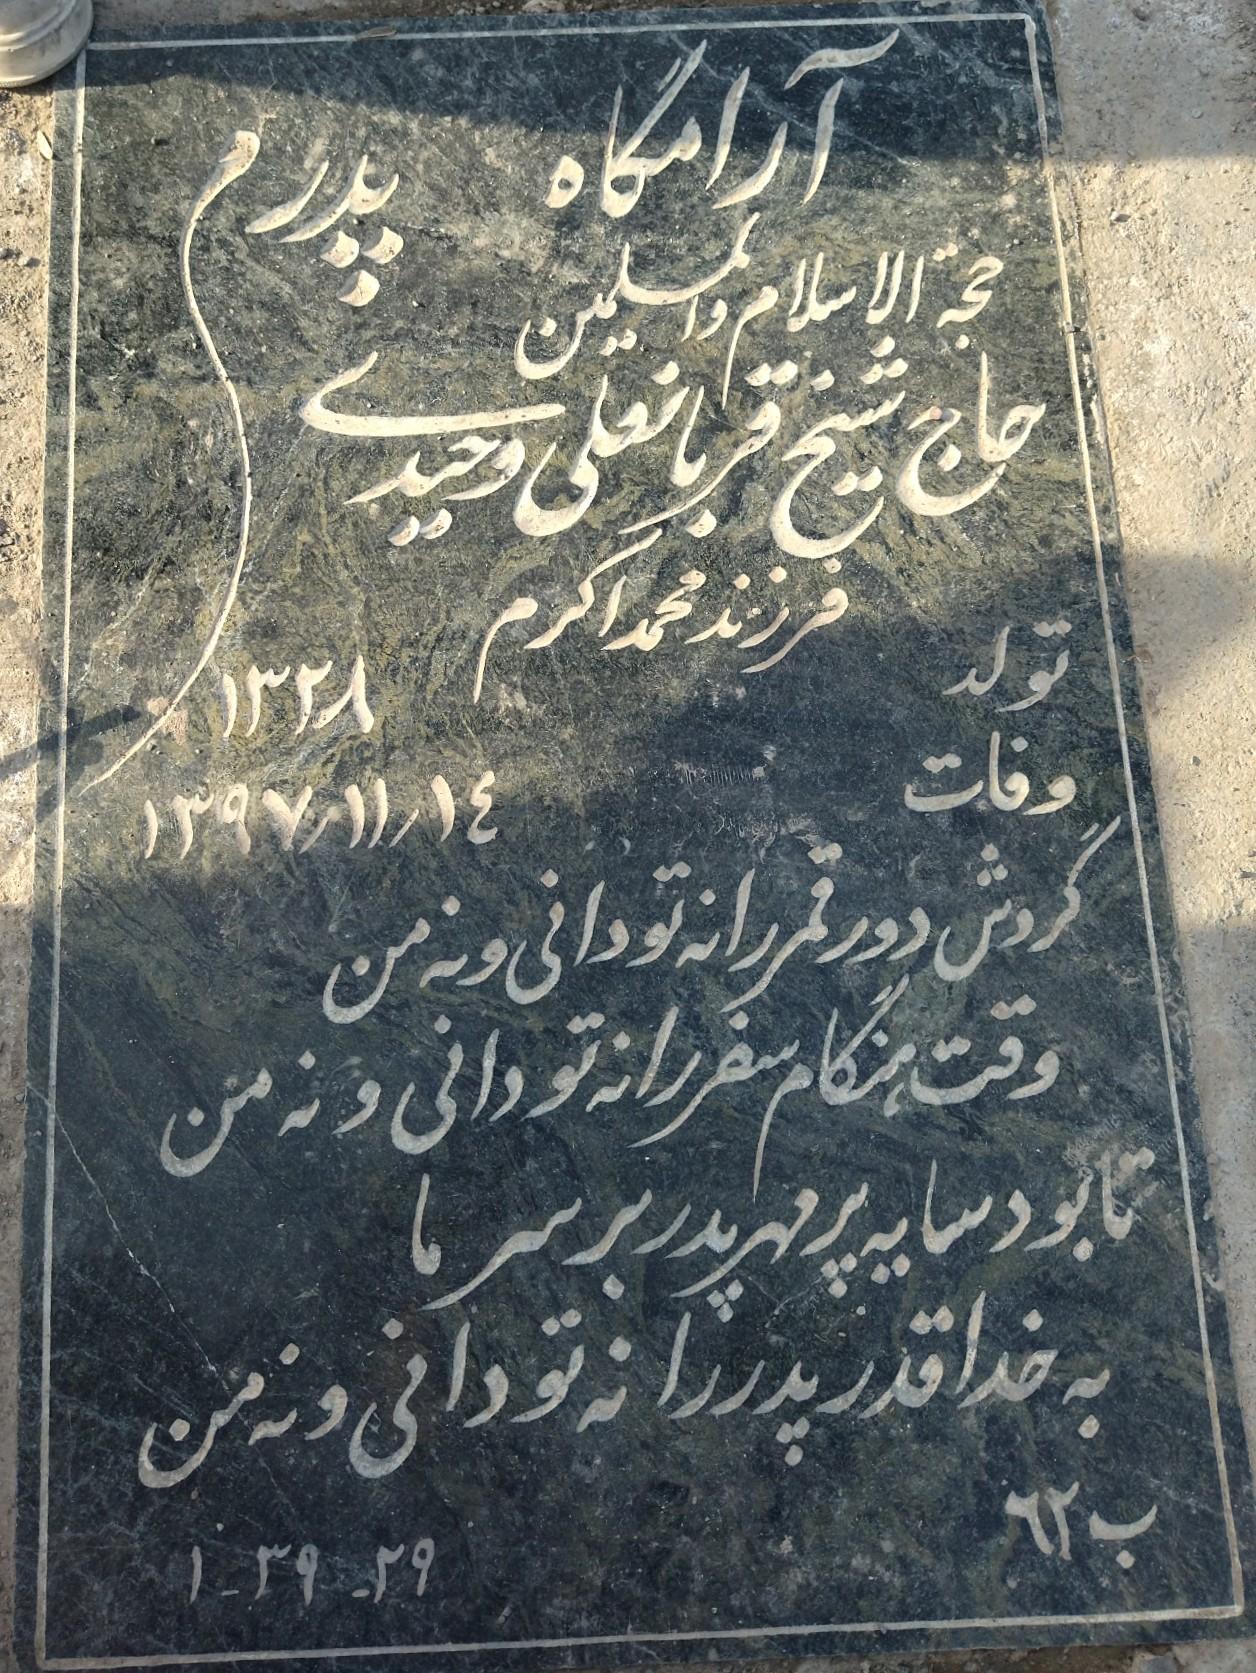 آرامگاه پدرم
حجة الاسلام والمسلمین
حاج شیخ قربانعلی وحیدی
فرزند محمد اکرم
تولد ۱۳۲۸
وفات ۱۳۹۷/۱۱/۱٤
گردش دور قمر را نه تو دانی و نه من
وقت هنگام سفر را نه تو دانی و نه من
تا بود سایه پر مهر پدر بر سر ما
به خدا قدر پدر را نه تو دانی و نه من
ب ٦٢
۱-۳۹-۲۹